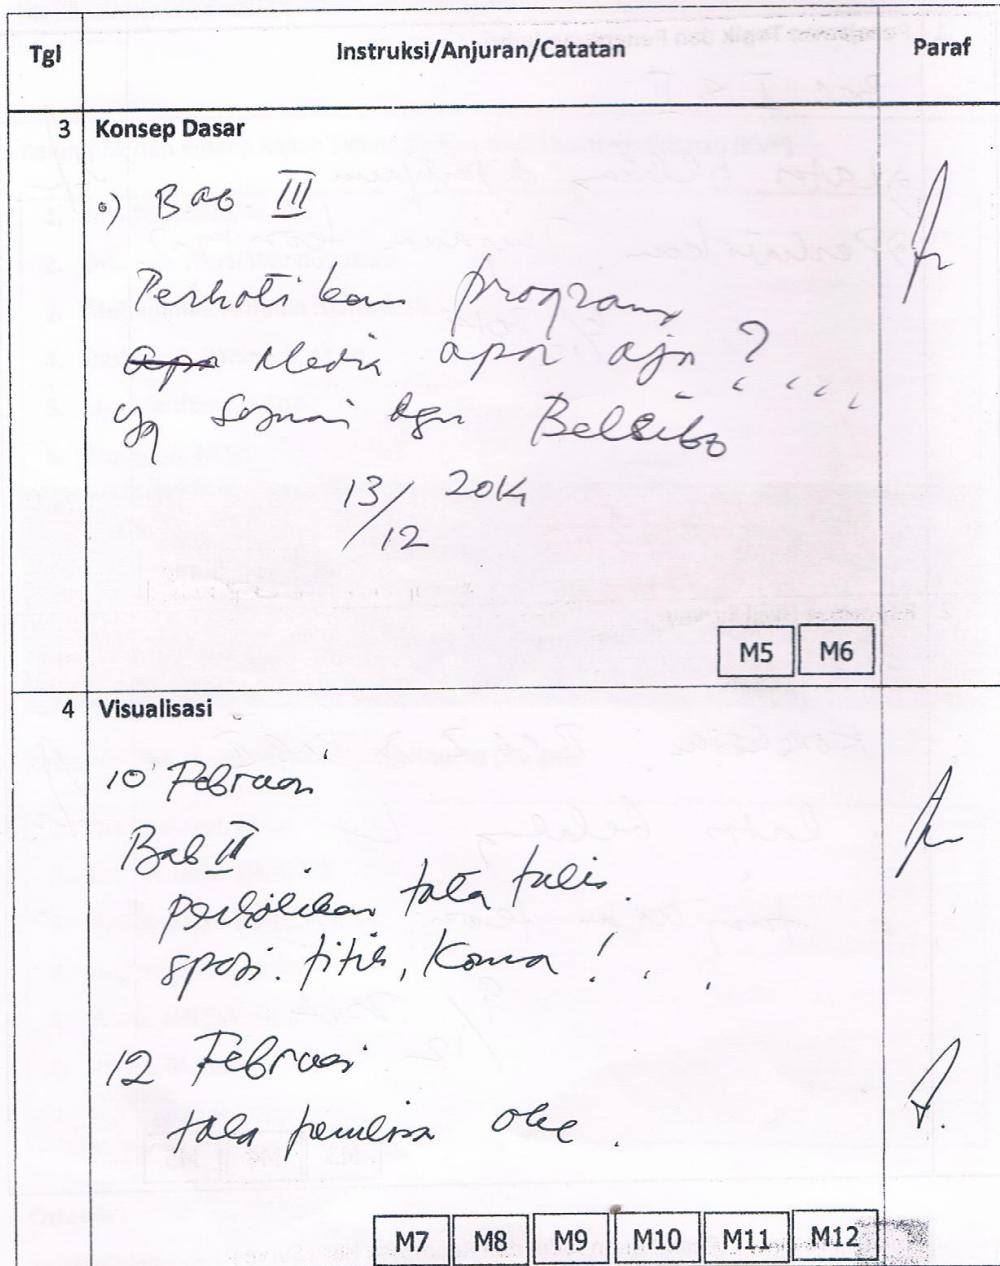 Tgl Instruksi/Anjuran/Catatan Paraf
3 Konsep Dasar
o) Bab III
Perhatikan program
apa Media apa aja ?
yg sesuai dgn
13/12 2014
M5 M6
4 Visualisasi
10 Februari
Bab II
perbaikan tata tulis.
spasi. titik, koma !
12 Februari
tata penulisan oke.
M7 M8 M9 M10 M11 M12